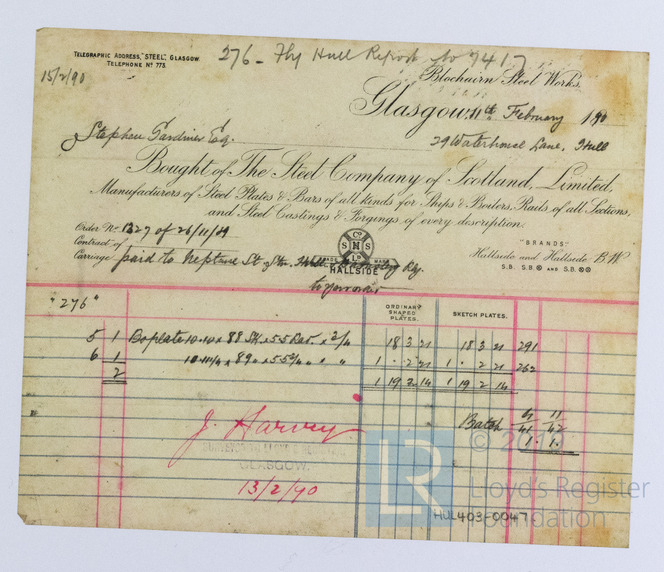 TELEGRAPHIC ADDRESS, "STEEL", GLASGOW.
TELEPHONE No 773.
276 - Hull Report No 7417
15/2/90
Blochairn Steel Works,
Glasgow, 11th February 1890
Stephen Gardiner Esq.
29 Waterhouse Lane, Hull
Bought of The Steel Company of Scotland, Limited,
Manufacturers of Steel Plates & Bars of all kinds for Ships & Boilers, Rails of all Sections,
and Steel Castings & Forgings of every description.
Order No. 1327 of 26/11/89
Contract of
Carriage paid to Neptune St
Co
S N S
LD
TRADE MARK
HALLSIDE
"BRANDS"
Hallside and Hallside B.W
S.B. S.B.⊗ AND S.B.⊗⊗
"276"
ORDINARY SHAPED PLATES.
SKETCH PLATES.
5 1 Bo plate 18 3 21 18 3 21 291
6 1 1 · 2 21 1 · 2 21 262
2 1 19 2 14 1 19 2 14
Batch 41 42
1. 1.
J. Harvey
GLASGOW.
13/2/90
LR
Lloyd's Register
Foundation
HUL403-0047